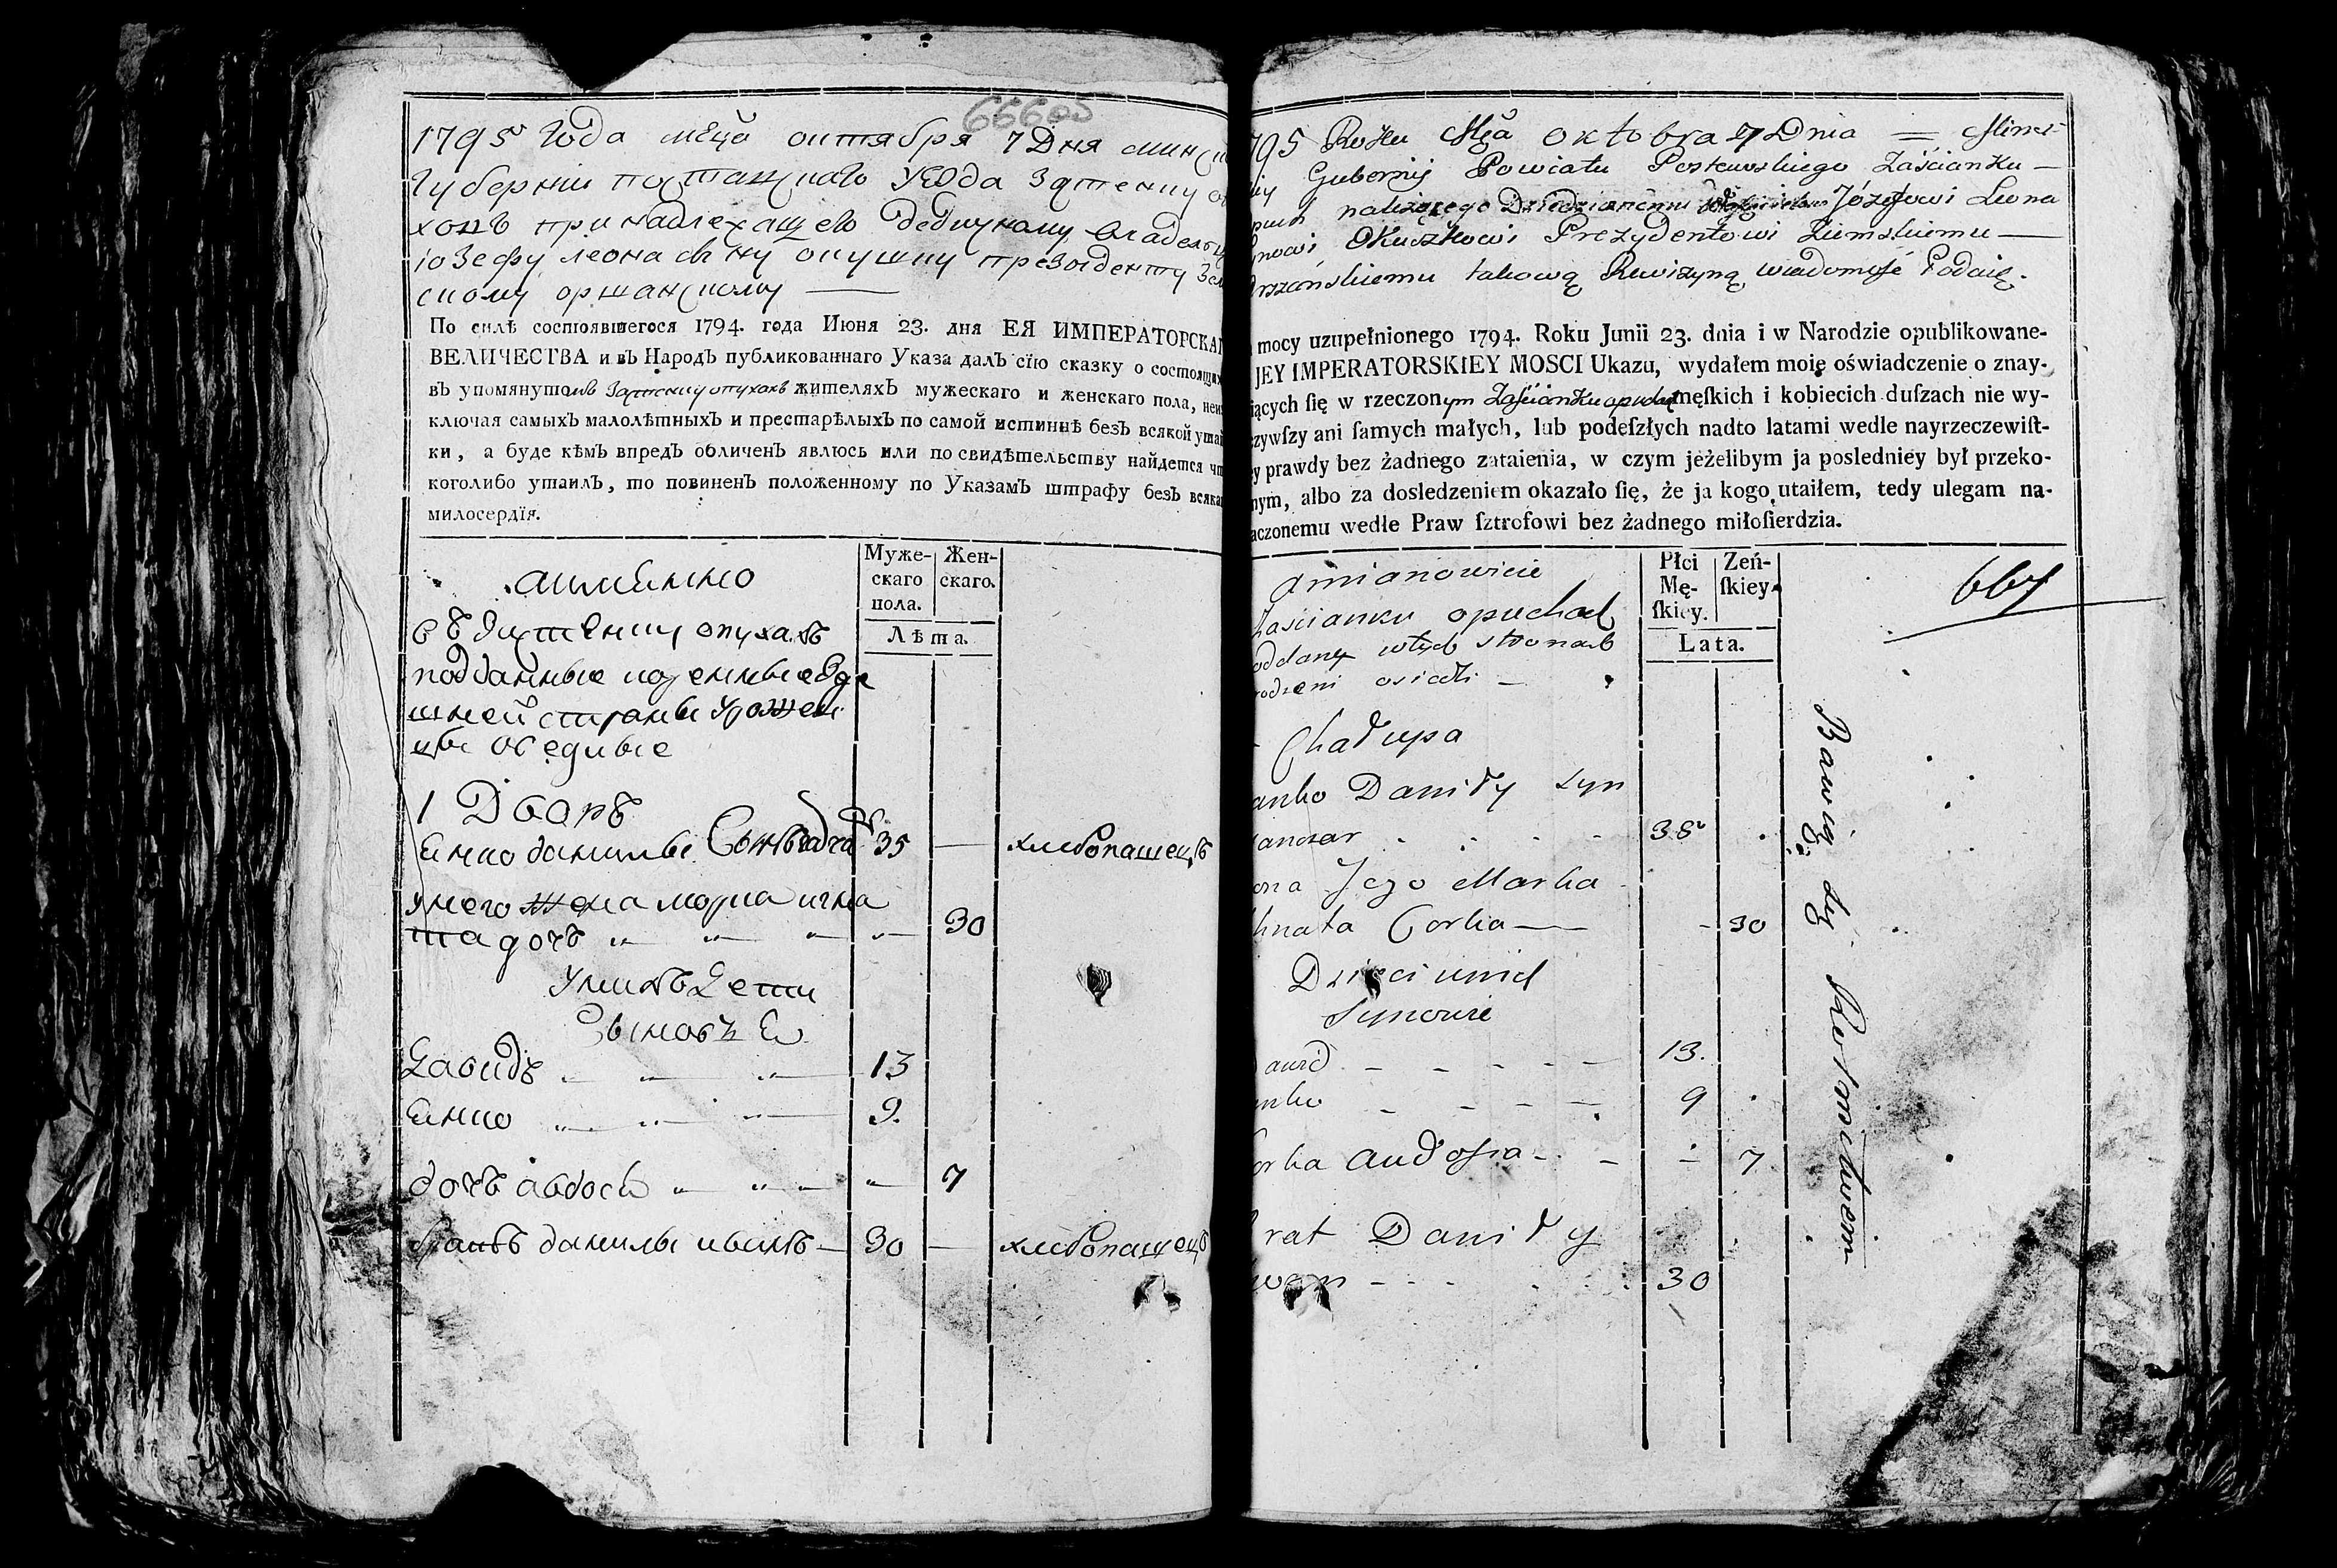 666об
1795 Года мсца октября 7 Дня минск
Губернии поставскаго уезда застенку о
хопъ принадлежащего дедичному владельц
іозефу леонасыну окушку президенту Зем
скому оршанскому
По силѣ состоявшегося 1794. года Июня 23. дня ЕЯ ИМПЕРАТОРСКАГ
ВЕЛИЧЕСТВА и въ Народъ публикованнаго Указа далъ сїю сказку о состоящих
въ упомянутомъ Застенку опухахъ жителяхъ мужескаго и женскаго пола, неис
ключая самыхъ малолѣтныхъ и престарѣлыхъ по самой истиннѣ безъ всякой утай
ки, а буде кѣмъ впредъ обличенъ явлюсь или по свидѣтельству найдется чт
коголибо утаилъ, то повиненъ положенному по Указамъ штрафу безъ всяка
милосердїя.
аимянно
Муже-
скаго
пола.
Жен-
скаго.
Лѣта.
въ застенку опухахъ
подданные коренные Зде
шней стораны урожен
цы оседлые
1 Дворъ
Янко данилы Сынъ 35 — хлебопашецъ
унего жена марка игна
та дочь 30
унихъ Дети
Сыновья
Давидъ 13
Янко 9.
дочь авдося 7
братъ данилы иванъ — 30 — хлебопашецъ
795 Roku Msca Oktobra 7 Dnia = Mins
iy Gubernij Powiatu Postawskiego Zaścianku —
puch należącego Dziedzicznemu Józefowi Leona
ynowi Okuszkowi Prezydentowi Ziemskiemu —
rszańskiemu takową Rewizyną wiadomość Podaię.
mocy uzupełnionego 1794. Roku Junii 23. dnia i w Narodzie opublikowane-
JEY IMPERATORSKIEY MOSCI Ukazu, wydałem moię oświadczenie o znay-
iących ſię w rzeczonym Zaścianku opuchach męſkich i kobiecich duſzach nie wy-
zywſzy ani ſamych małych, lub podeſzłych nadto latami wedle nayrzeczewiſt-
ey prawdy bez żadnego zataienia, w czym jeżelibym ja posledniey był przeko-
nym, albo za dosledzeniem okazało ſię, że ja kogo utaiłem, tedy ulegam na-
aczonemu wedle Praw ſztrofowi bez żadnego miłoſierdzia.
amianowicie
Płci
Mę-
ſkiey.
Zeń-
ſkiey
Lata.
667
Zascianku opuchach
oddany wtych stronach
rodzeni osiedli —
Chałupa
anko Daniły Syn
38
ona Jego Marka
hnata Corka — 30
Dzieci unich
Synowie
awid 13.
nko 9
orka Audosia 7
rat Daniły
wan 30